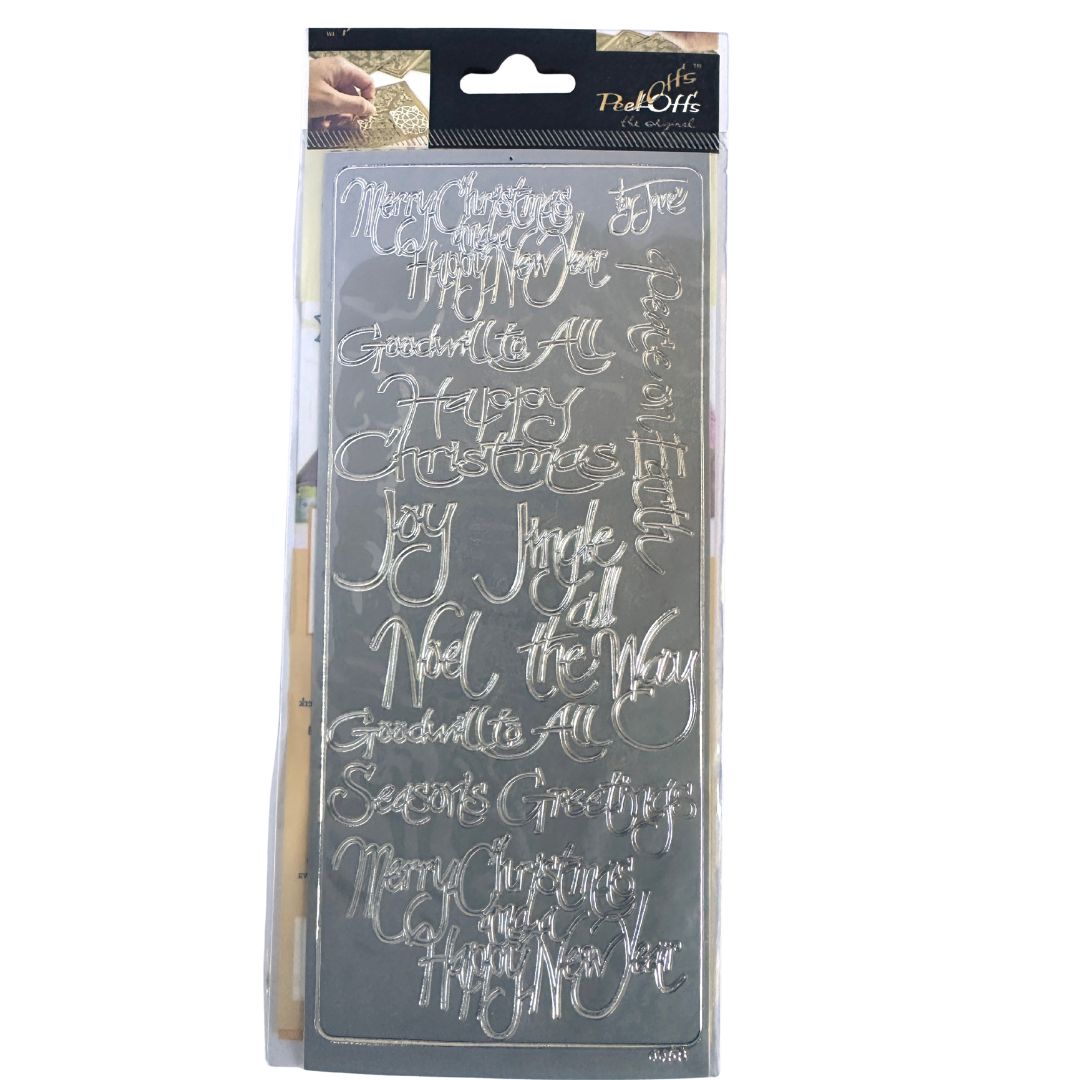 Peel-Off's
Off's ™
the original
Merry Christmas
and a
Happy New Year
by Jane
Peace on Earth
Goodwill to All
Happy
Christmas
Joy
Jingle
all
the Way
Noel
Goodwill to All
Season's Greetings
Merry Christmas
and a
Happy New Year